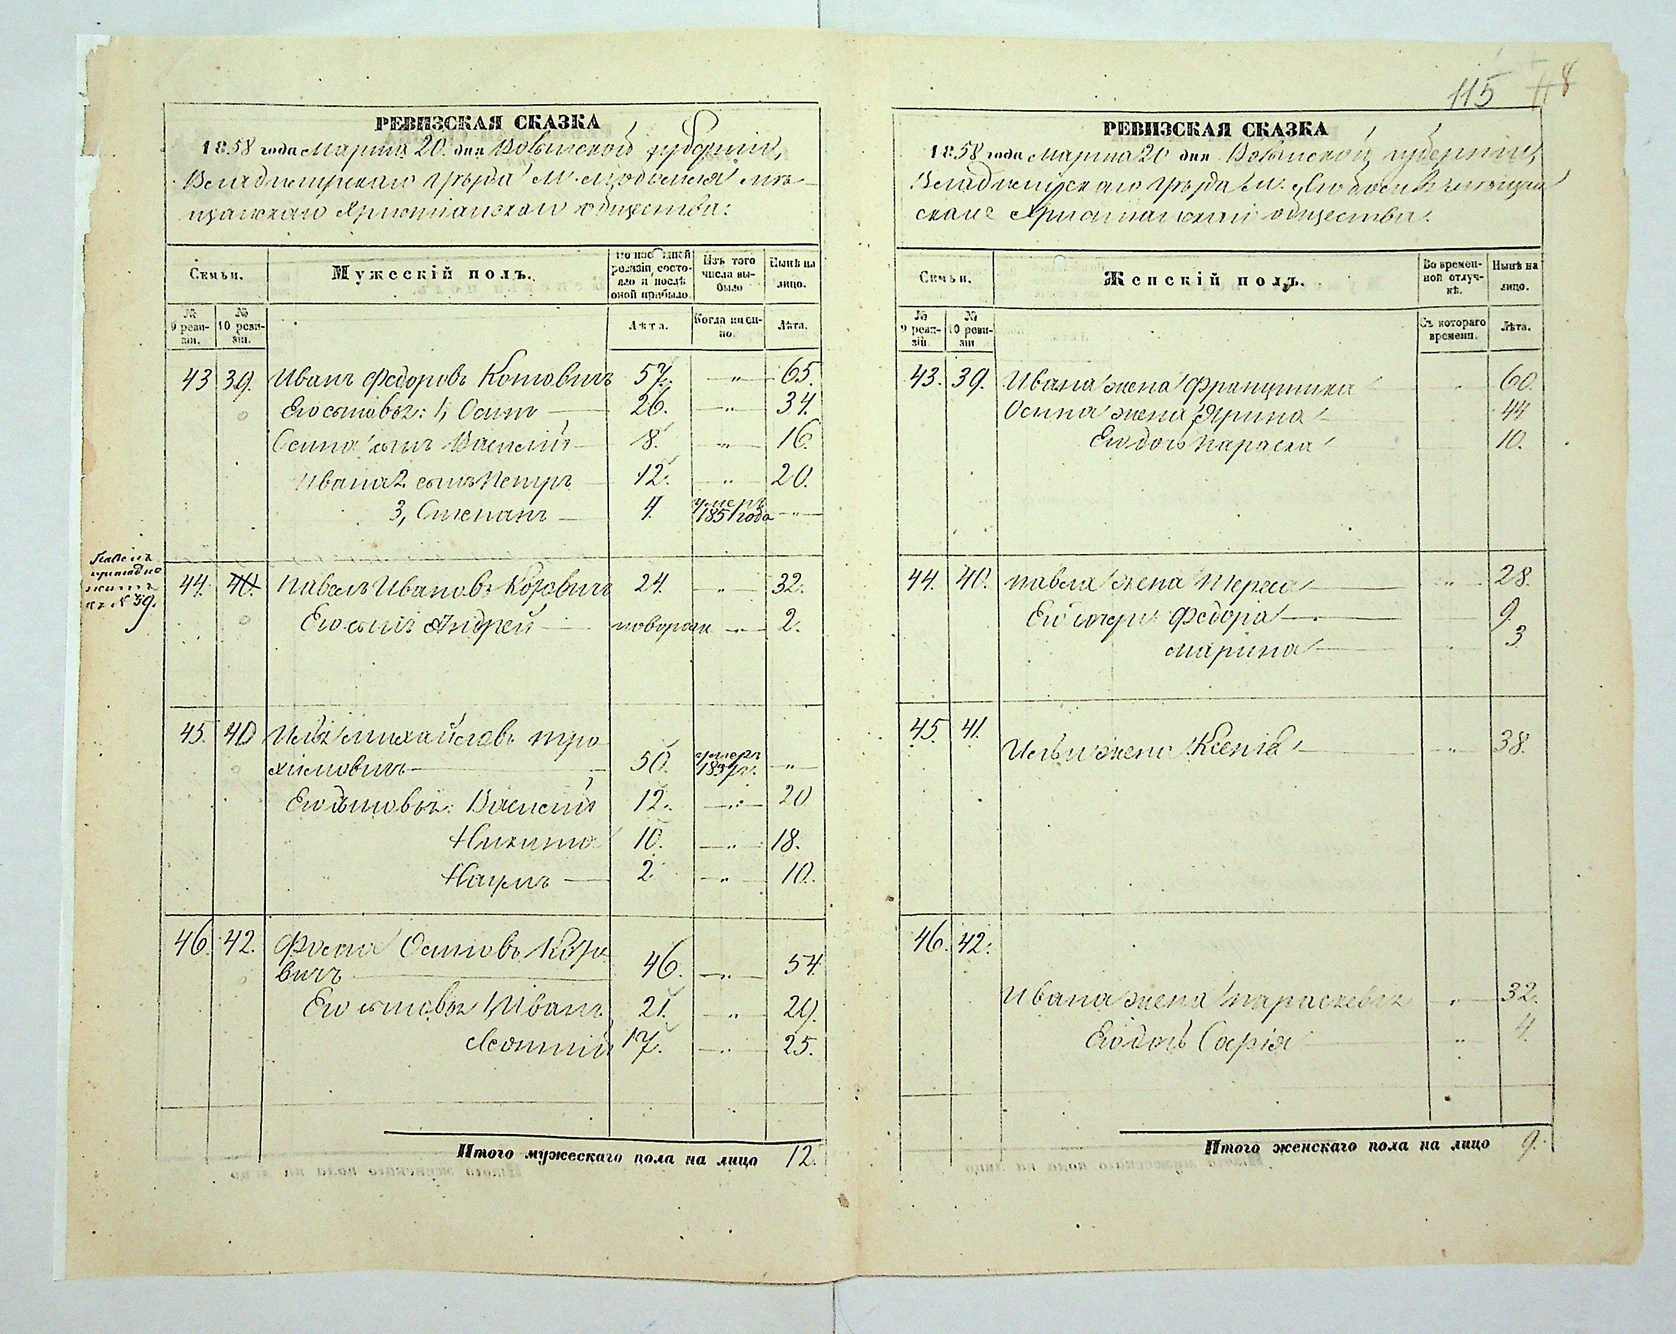 115
РЕВИЗСКАЯ СКАЗКА
1858 года Марта 20 дня Волынской губерніи,
Владимірскаго уѣзда м.
Христіанскаго общества:
Семьи.
Мужескій полъ.
По последней ревизіи состояло и послѣ оной прибыло
Изъ того числа выбыло
Нынѣ на лицо.
№ 9 ревизіи.
№ 10 ревизіи.
Лѣта.
Когда именно.
Лѣта.
43 39. Иванъ Федоровъ 57. —"— 65.
Его сыновья: 1, Осипъ — 26. —"— 34.
Осипа сынъ Василій — 8. —"— 16.
Ивана 2 сынъ Петръ — 12. —"— 20.
3, Степанъ — 4. умеръ 1851 года —"—
Павелъ
къ № 39.
44. 40. Павелъ Ивановъ 24. —"— 32.
Его сынъ Андрей — новорож —"— 2.
45. 40 Илья Михайловъ Тро
химовичъ — 50. умеръ —"—
Его сыновья: Василій 12. —"— 20
Никита 10. —"— 18.
Наумъ — 2 —"— 10.
46. 42. Осиповъ
вичъ — 46. —"— 54.
Его сыновья 1, Иванъ 21. —"— 29.
17. —"— 25.
Итого мужескаго пола на лицо 12.
РЕВИЗСКАЯ СКАЗКА
1858 года Марта 20 дня Волынской губерніи,
Владимірскаго уѣзда м.
Христіанскаго общества.
Семьи.
Женскій полъ.
Во временной отлучкѣ.
Нынѣ на лицо.
№ 9 ревизіи.
№ 10 ревизіи
Съ котораго времени.
Лѣта.
43. 39. Ивана жена Францишка " 60.
Осипа жена Ярина 44
Его дочь Параска " 10.
44. 40. Павла жена —"— 28.
Его дочери: Федора — 9.
Марина — " 3
45. 41. Ильи жена Ксенія — —"— 38.
46. 42.
Ивана жена —"— 32.
Его дочь Софія " 4.
Итого женскаго пола на лицо 9.